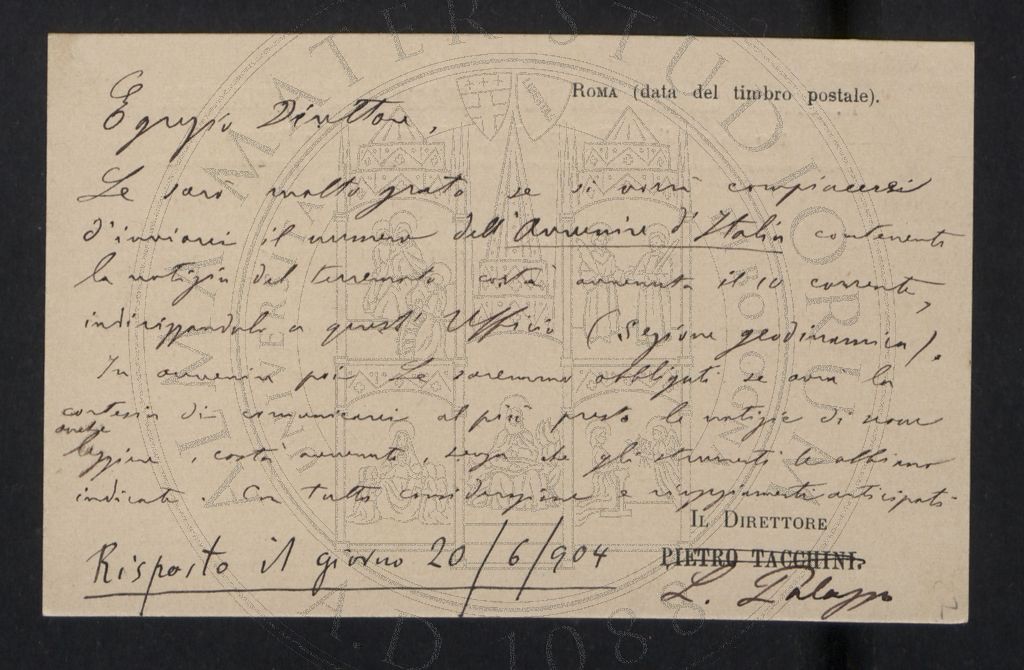 Roma (data del timbro postale).
Egregio Direttore,
Le sarò molto grato se si vorrà compiacersi
d'inviarci il numero dell'Avvenire d'Italia contenente
la notizia del terremoto costà avvenuto il 10 corrente,
indirizzandolo a quest'Ufficio (Sezione geodinamica).
In avvenire poi Le saremmo obbligati se avrà la
cortesia di comunicarci al più presto le notizie di scosse
anche leggiere, costà avvenute, senza che gli strumenti le abbiano
indicate. Con tutta considerazione e ringraziamenti anticipati
Il Direttore
PIETRO TACCHINI.
L. Palazzo
Risposto il giorno 20/6/904
ALMA MATER STUDIORUM
A.D. 1088